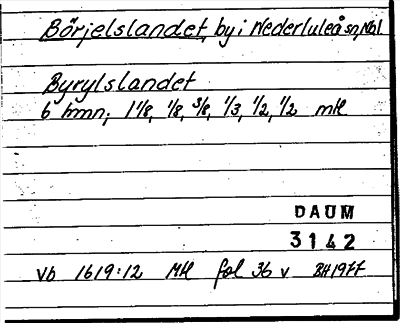 Börjelslandet, by i Nederluleå sn, Nbl
Byrylslandet
6 hmn; 1 1/8, 1/8, 3/8, 1/3, 1/2, 1/2 mtl
DAUM
3142
Vb 1619:12 Mtl fol 36 v BH1977